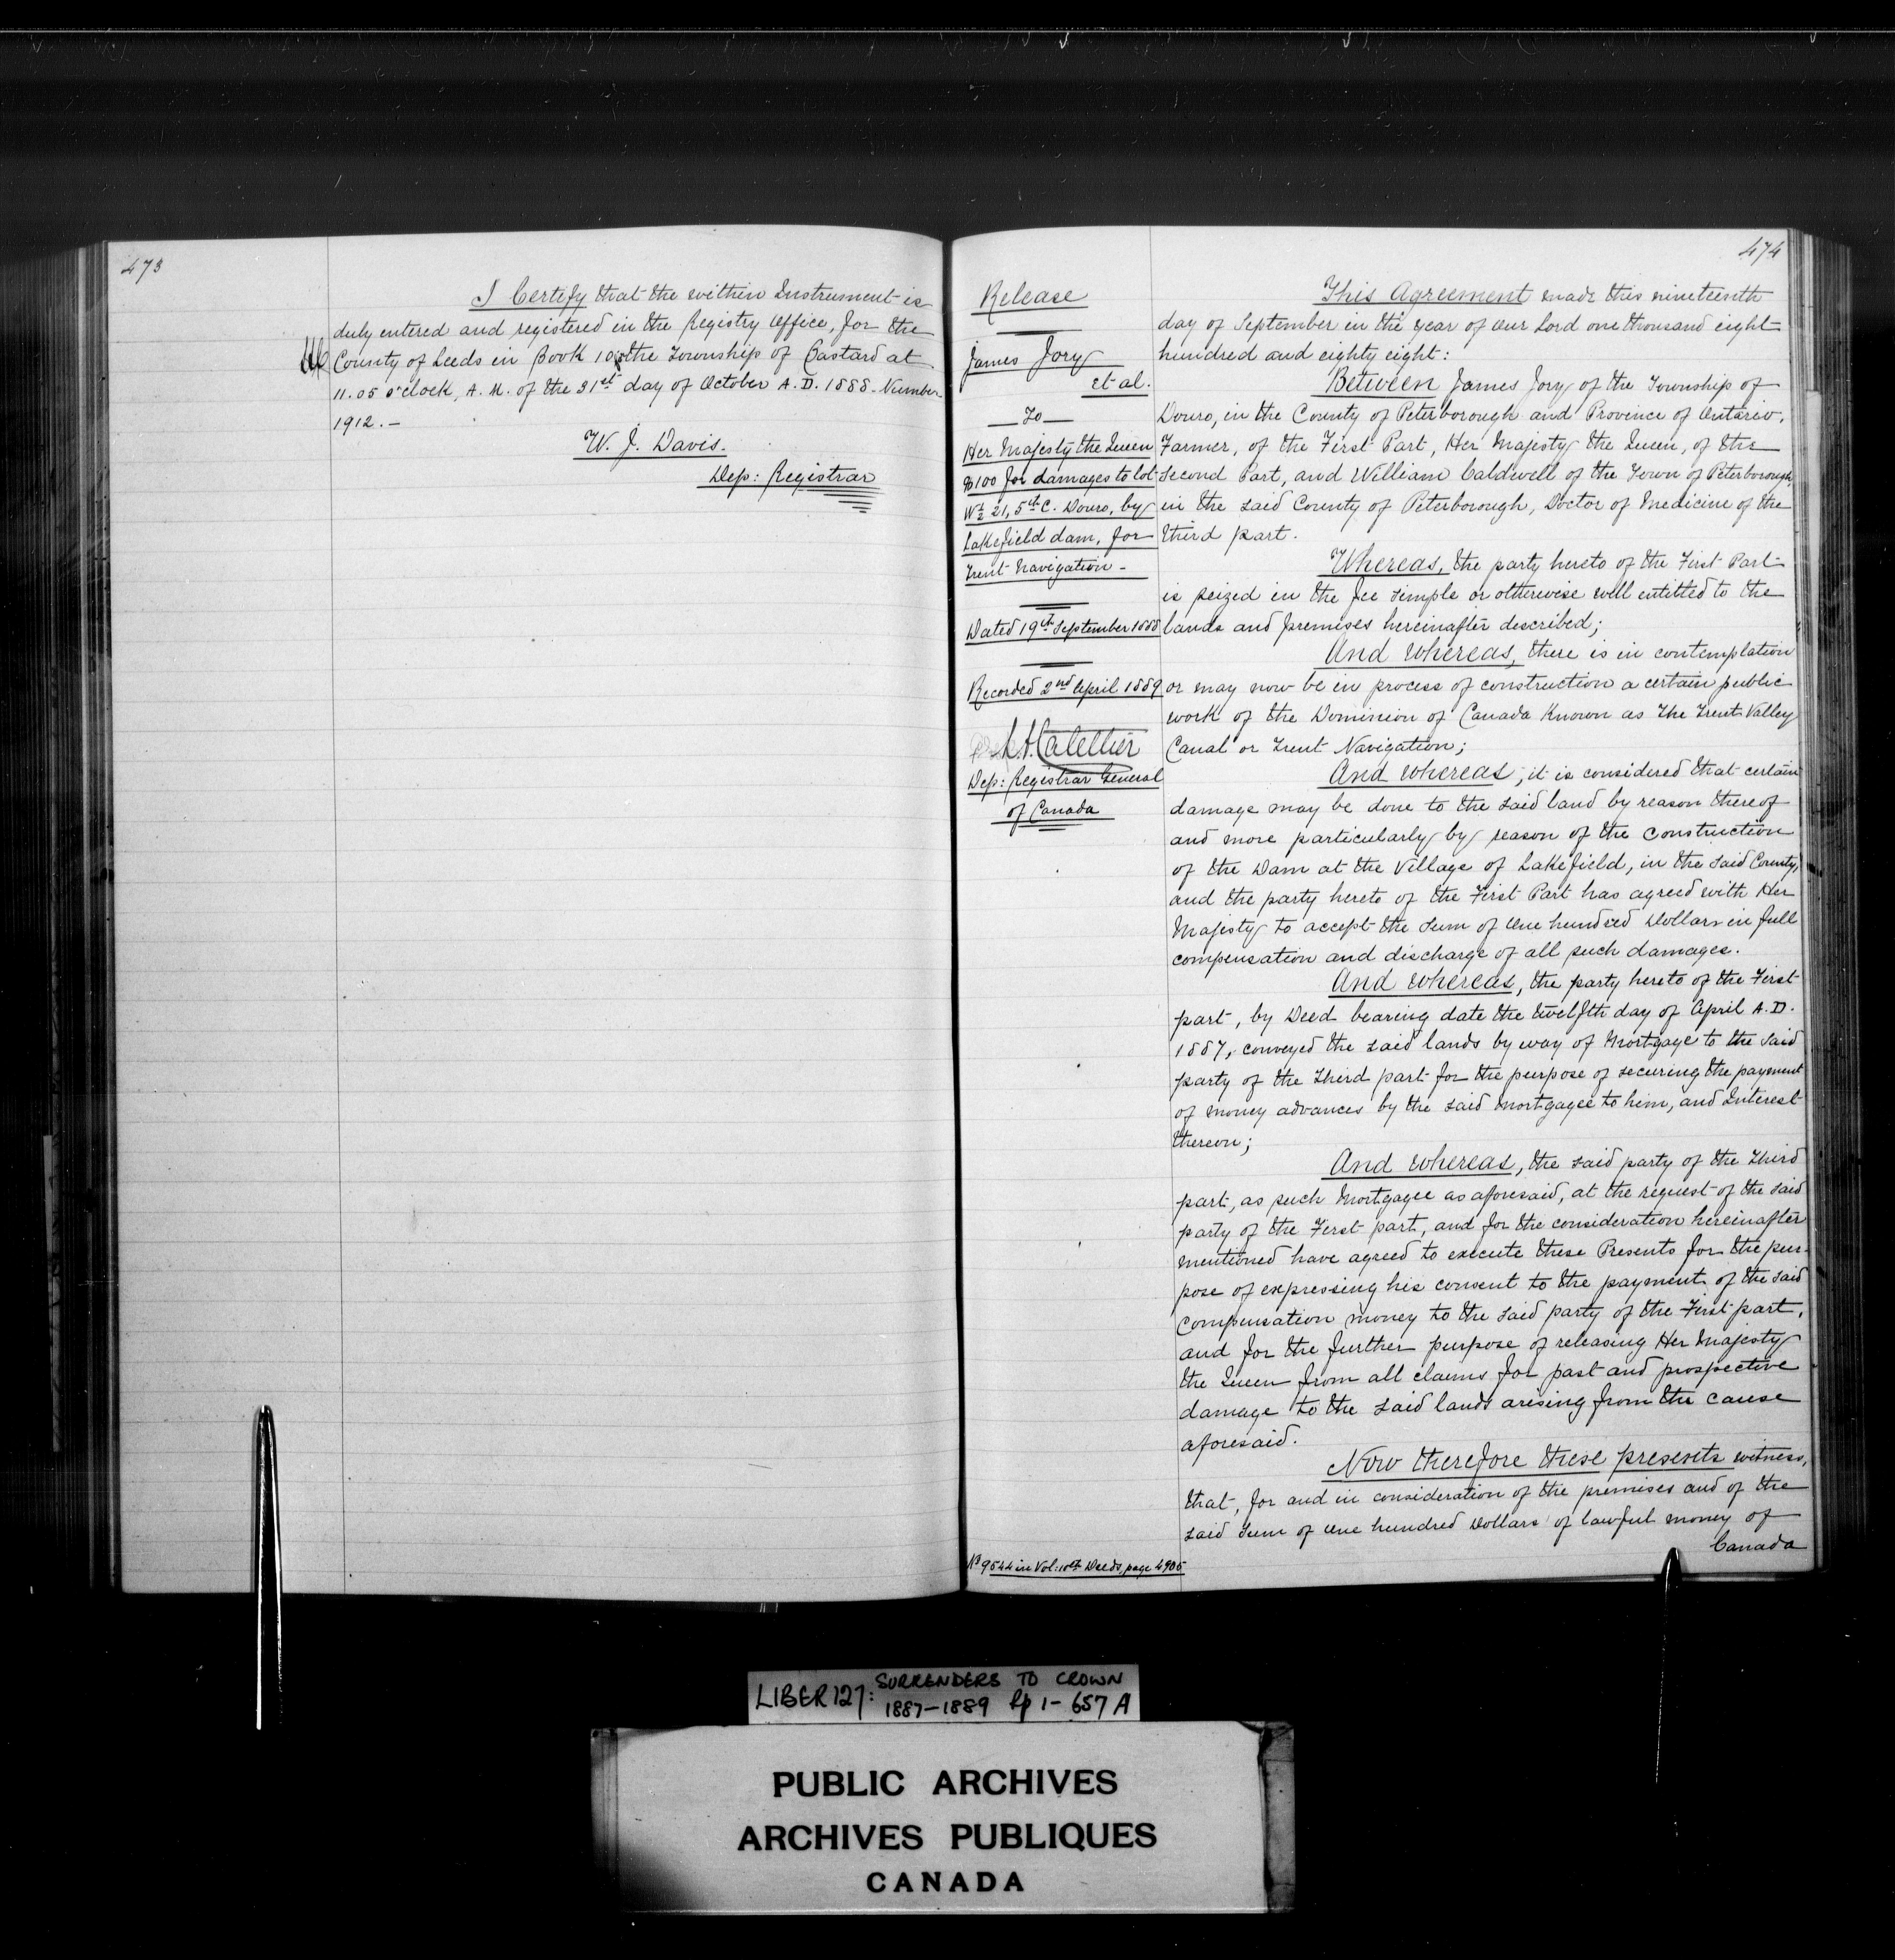 473
I Certify that the within Instrument is
duly entered and registered in the Registry Office, for the
County of Leeds in Book 10 the Township of Bastard at
11.05 o'clock, A.M. of the 31st day of October A.D. 1888. Number
1912. -
W. J. Davis.
Dep: Registrar
474
Release
James Jory
et al.
To
Her Majesty the Queen
$100 for damages to lot
W½ 21, 5th C. Douro, by
Lakefield dam, for
Trent Navigation -
Dated 19th September 1888
Recorded 2nd April 1889
L.A. Catellier
Dep: Registrar General
of Canada
No 9544 in Vol: 10th Deeds, page 4905
This Agreement made this nineteenth
day of September in the year of Our Lord one thousand eight
hundred and eighty eight:
Between James Jory of the Township of
Douro, in the County of Peterborough and Province of Ontario,
Farmer, of the First Part, Her Majesty the Queen, of the
Second Part, and William Caldwell of the Town of Peterborough,
in the said County of Peterborough, Doctor of Medicine of the
third part.
Whereas, the party hereto of the First Part
is seized in the fee simple or otherwise well entitled to the
lands and premises hereinafter described;
And whereas, there is in contemplation
or may now be in process of construction a certain public
work of the Dominion of Canada Known as The Trent Valley
Canal or Trent Navigation;
And whereas, it is considered that certain
damage may be done to the said land by reason thereof
and more particularly by reason of the construction
of the Dam at the Village of Lakefield, in the said County,
and the party hereto of the First Part has agreed with Her
Majesty to accept the sum of One hundred Dollars in full
compensation and discharge of all such damages.
And whereas, the party hereto of the First
part, by Deed bearing date the twelfth day of April A.D.
1887, conveyed the said lands by way of Mortgage to the said
party of the Third part for the purpose of securing the payment
of money advances by the said mortgagee to him, and Interest
thereon;
And whereas, the said party of the Third
part, as such Mortgagee as aforesaid, at the request of the said
party of the First part, and for the consideration hereinafter
mentioned have agreed to execute these Presents for the pur-
pose of expressing his consent to the payment of the said
compensation money to the said party of the First part,
and for the further purpose of releasing Her Majesty
the Queen from all claims for past and prospective
damage to the said lands arising from the cause
aforesaid.
Now therefore these presents witness,
that, for and in consideration of the premises and of the
said sum of One hundred Dollars of lawful money of
Canada
LIBER 127: SURRENDERS TO CROWN
1887-1889 Pp 1-657A
PUBLIC ARCHIVES
ARCHIVES PUBLIQUES
CANADA